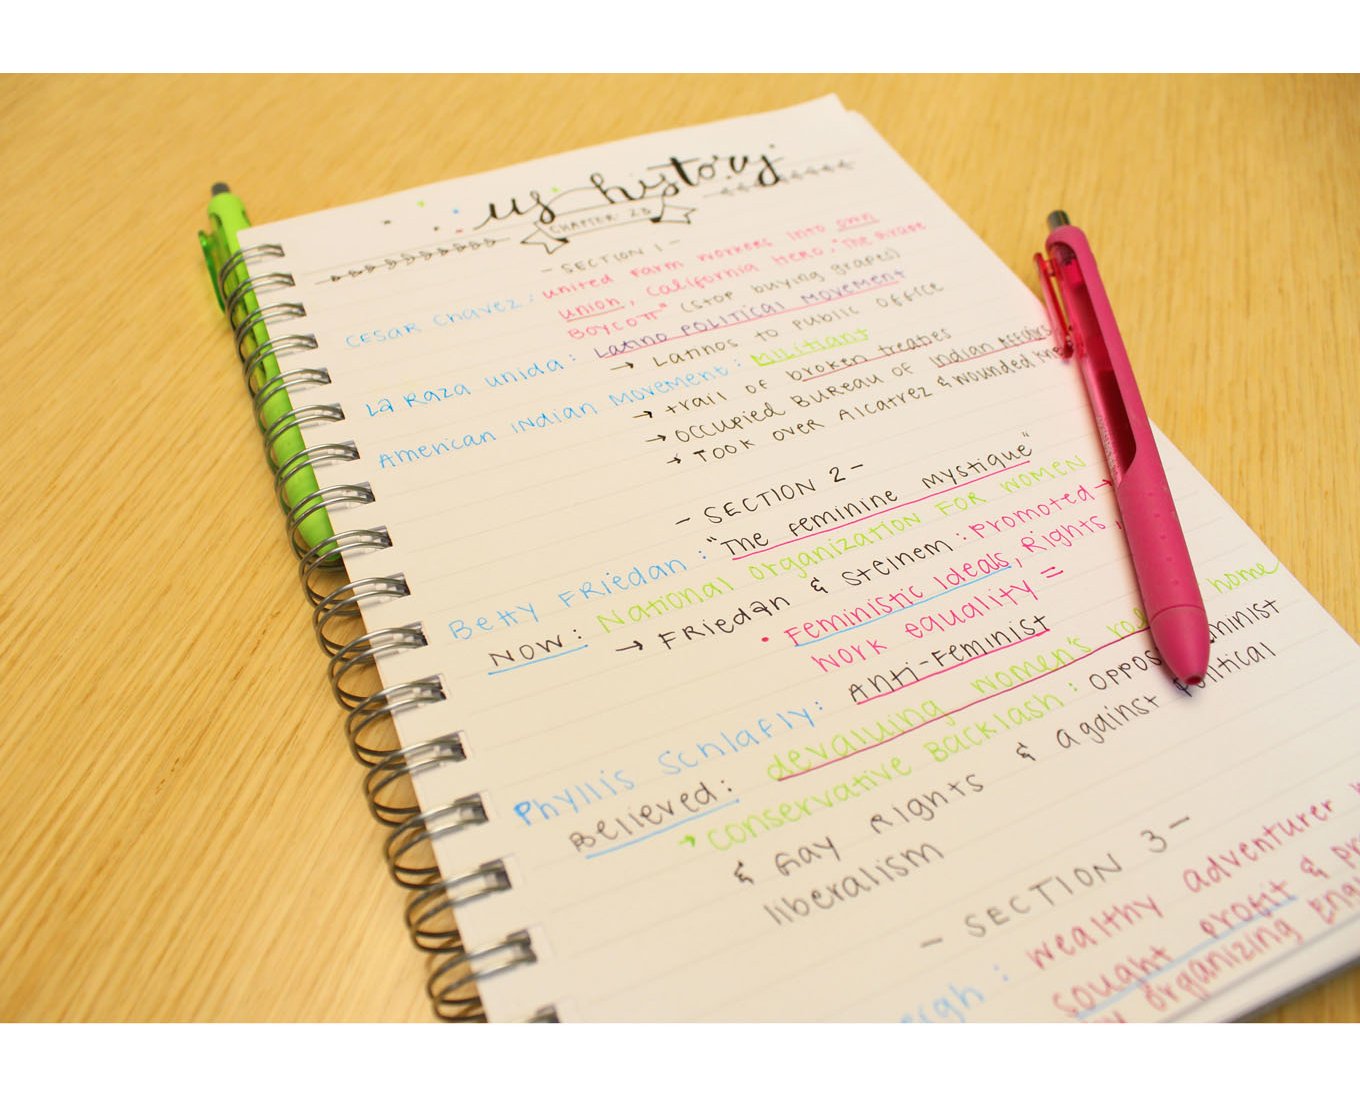 us history
CHAPTER 23
- SECTION 1 -
CESAR Chavez: united Farm workers into own
union, California Hero, "The Grape
Boycott" (stop buying grapes)
La Raza Unida: Latino POLITICAL MOVEMENT
→ Latinos to public office
American Indian Movement: Militiant
→ trail of broken treaties
→ OCCUPIED BUREAU OF Indian Affairs
→ TOOK OVER Alcatrez & Wounded Knee
- SECTION 2 -
Betty Friedan: "The feminine mystique"
NOW: National organization FOR WOMEN
→ FRiedan & Steinem: Promoted →
• Feministic Ideals, Rights,
work equality =
Phyllis Schlafly: Anti-Feminist
Believed: devaluing women's home
→ conservative Backlash: oppos
& Gay Rights & against political
liberalism
- SECTION 3 -
wealthy adventurer
sought profit &
by organizing